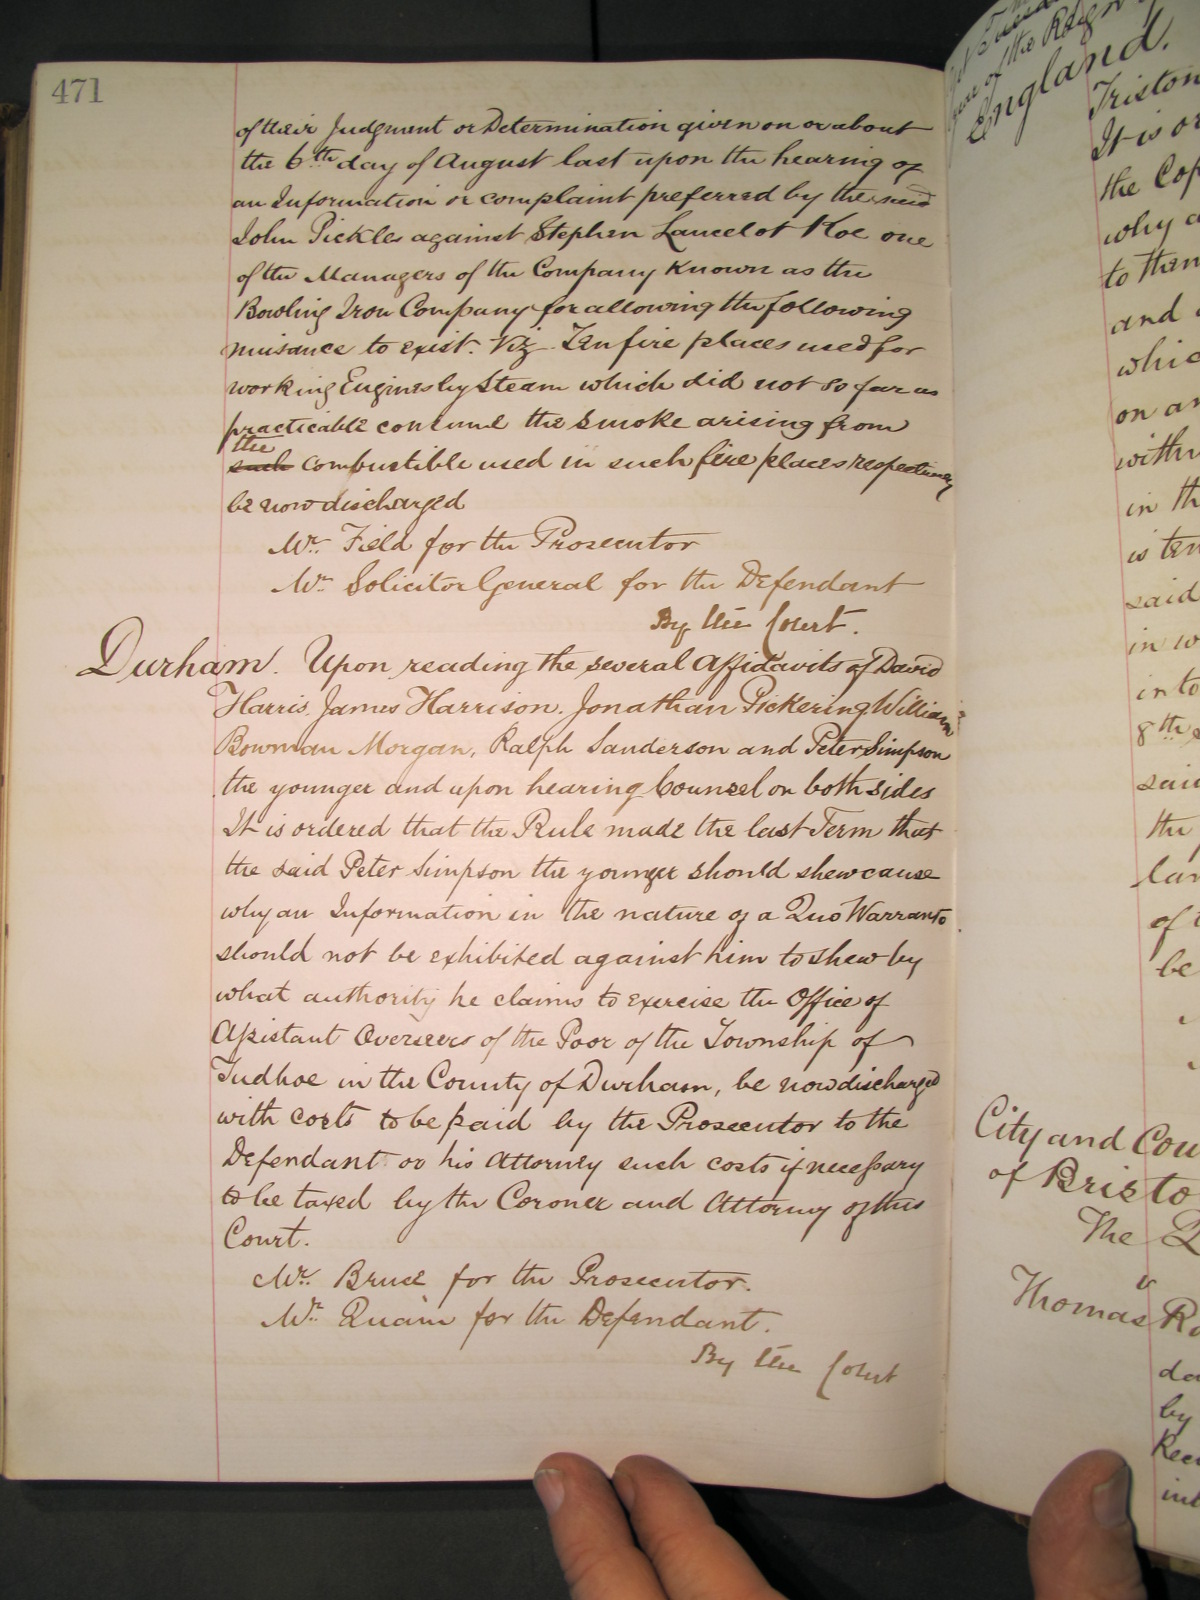 471
of their Judgment or Determination given on or about
the 6th day of August last upon the hearing of
an Information or complaint preferred by the said
John Pickles against Stephen Lancelot Koe one
of the Managers of the Company Known as the
Bowling Iron Company for allowing the following
nuisance to exist. Viz Ten fire places used for
working Engines by Steam which did not so far as
practicable consume the Smoke arising from
the
such combustible used in such fire places respectively
be now discharged
Mr. Field for the Prosecutor
Mr. Solicitor General for the Defendant
By the Court.
Durham. Upon reading the several Affidavits of David
Harris, James Harrison. Jonathan Pickering William
Bowman Morgan, Ralph Sanderson and Peter Simpson
the younger and upon hearing Counsel on both sides
It is ordered that the Rule made the last Term that
the said Peter Simpson the younger should shew cause
why an Information in the nature of a Quo Warranto
should not be exhibited against him to shew by
what authority he claims to exercise the Office of
Assistant Overseers of the Poor of the Township of
Tudhoe in the County of Durham, be now discharged
with costs to be paid by the Prosecutor to the
Defendant or his Attorney such costs if necessary
to be taxed by the Coroner and Attorney of this
Court.
Mr. Bruce for the Prosecutor.
Mr. Quain for the Defendant.
By the Court
of the Reign
England.
It is or
the
why
to them
and
on
within
in th
is
said
in
into
8th
said
the
of
be
City and Cou
of Bristo
The Q
Thomas
by